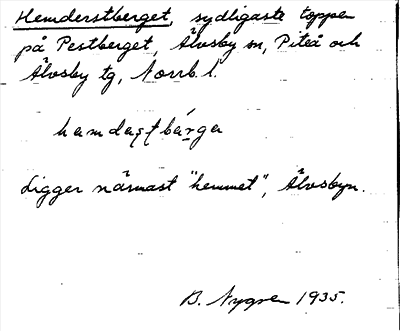 Hemderstberget, sydligaste toppen
på Pestberget, Älvsby sn, Piteå och
Älvsby tg, Norrb. l.
hemdaʂtbárga
Ligger närmast "hemmet", Älvsbyn.
B. Nygren 1935.